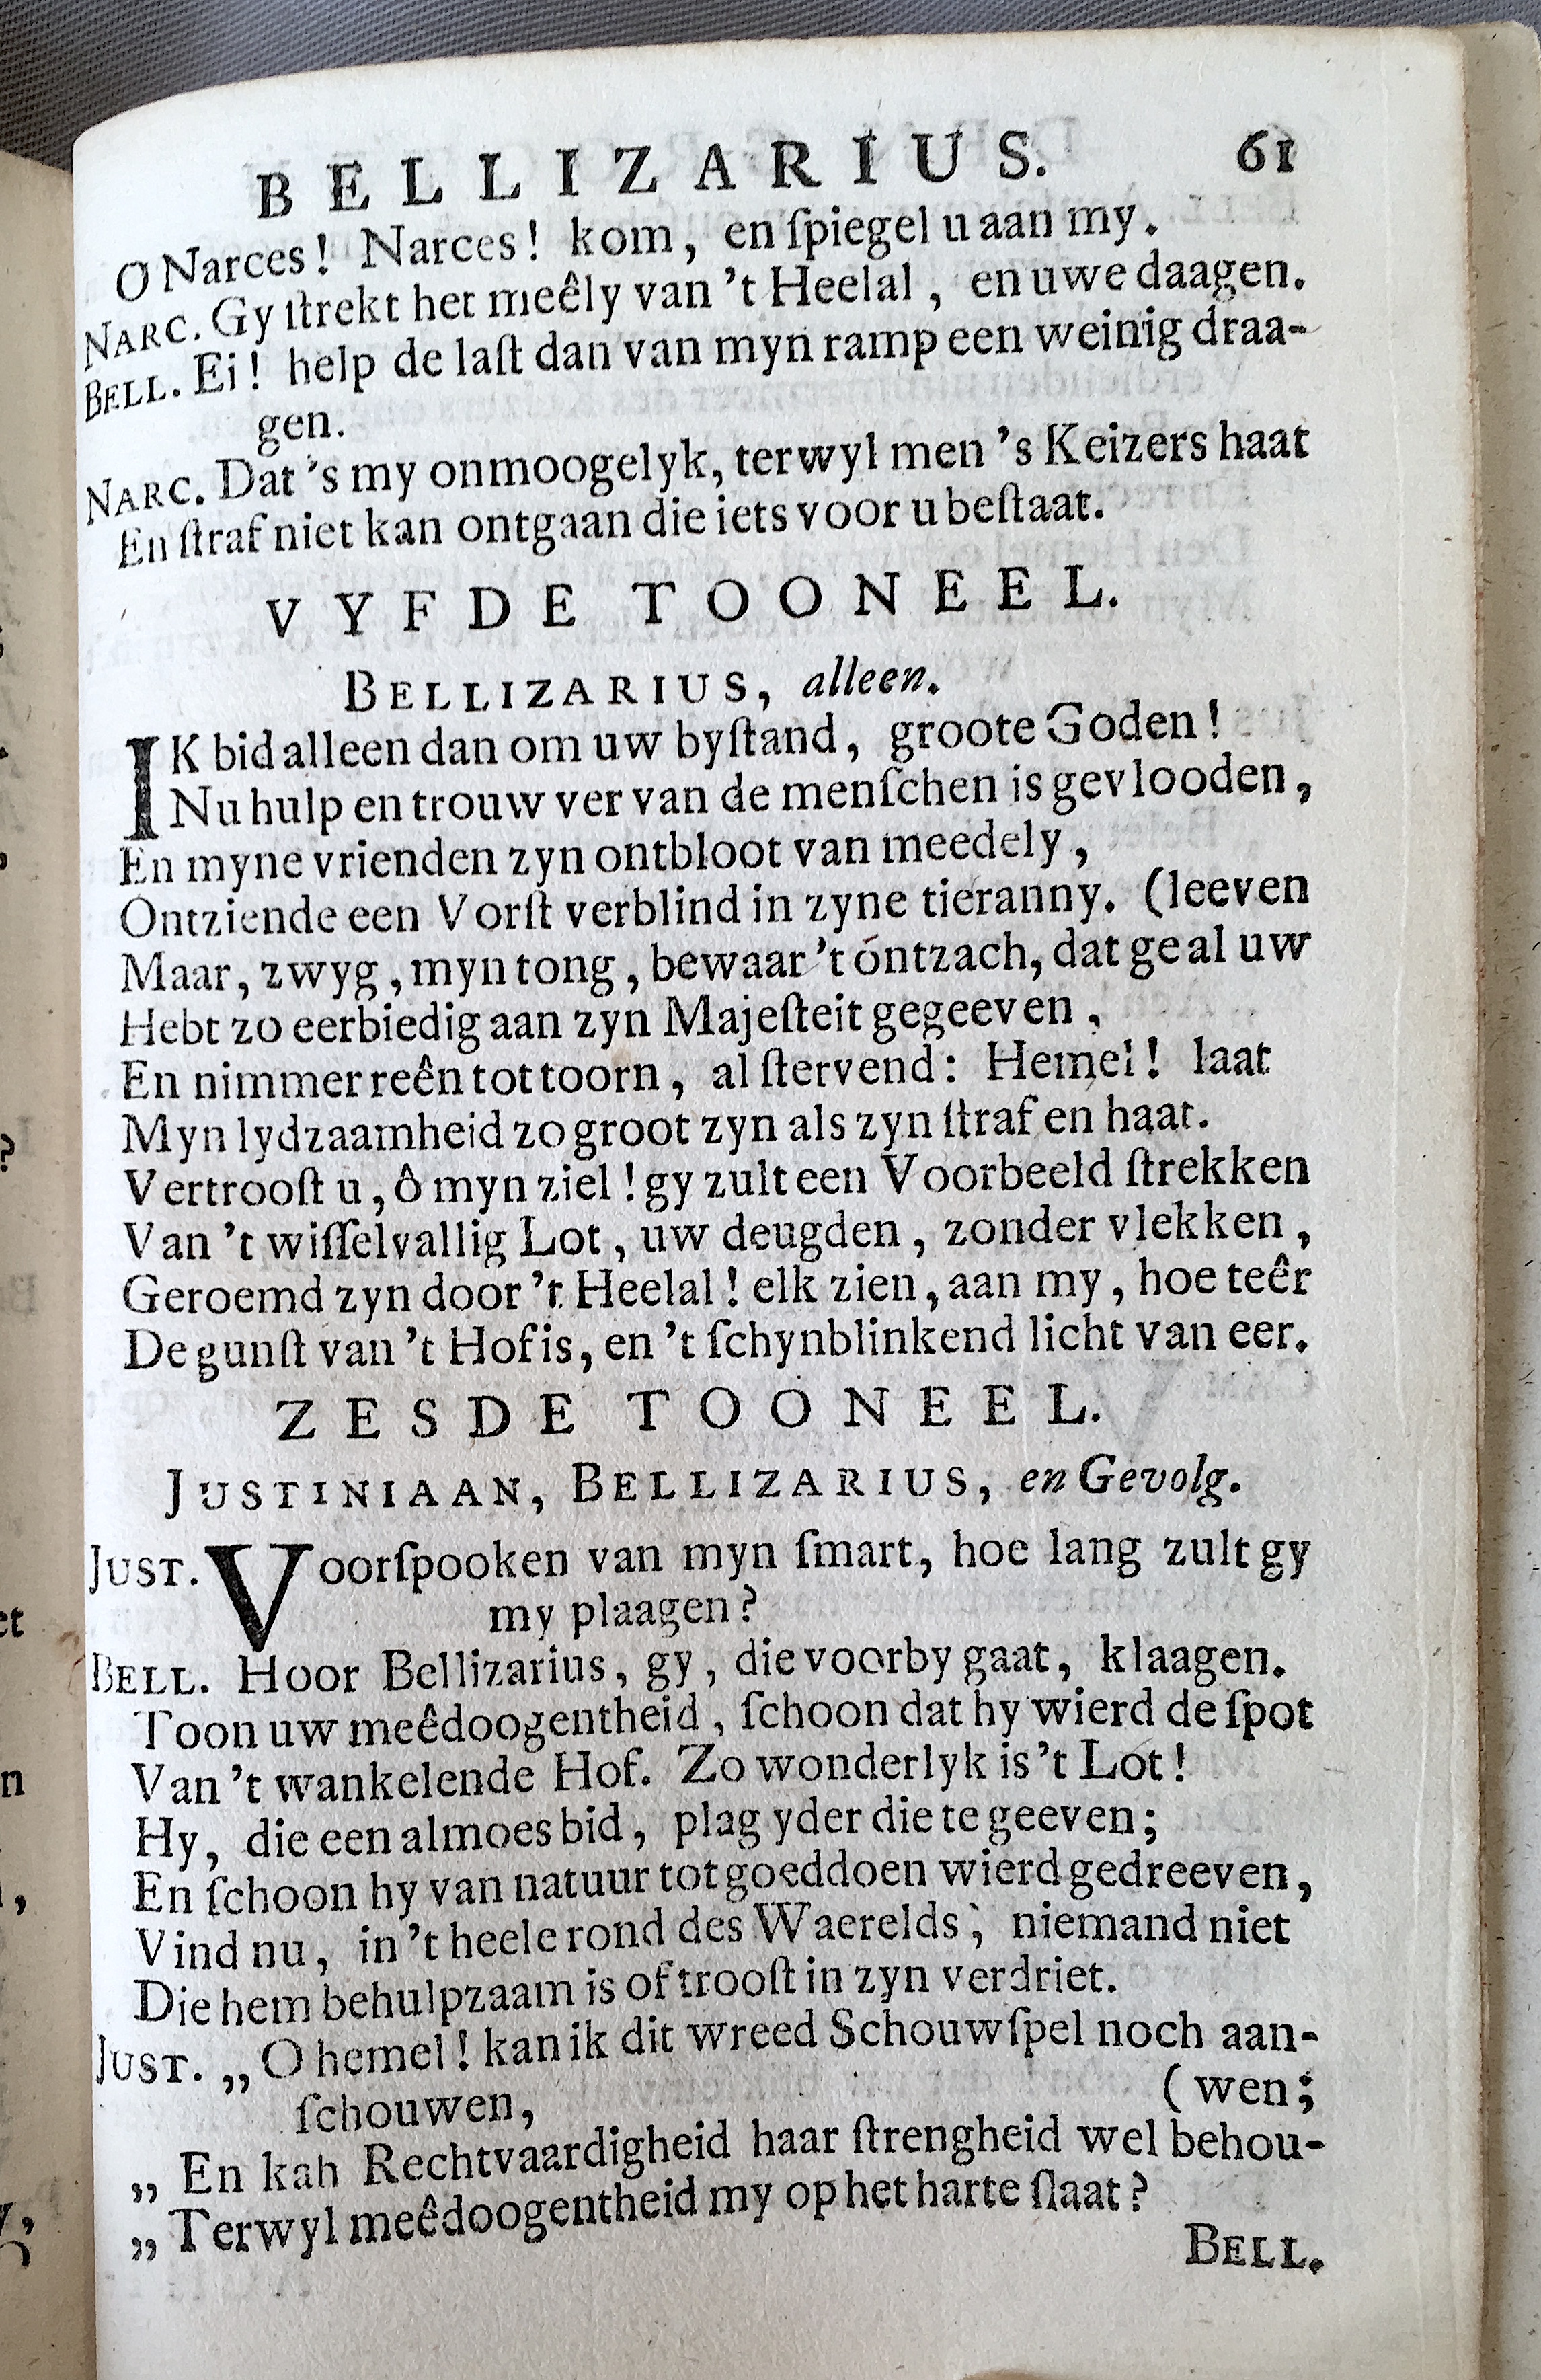 BELLIZARIUS. 61
O Narces! Narces! kom, en ſpiegel u aan my.
NARC. Gy ſtrekt het meêly van 't Heelal, en uwe daagen.
BELL. Ei! help de laſt dan van myn ramp een weinig draa-
gen.
NARC. Dat 's my onmoogelyk, terwyl men 's Keizers haat
En ſtraf niet kan ontgaan die iets voor u beſtaat.
VYFDE TOONEEL.
BELLIZARIUS, alleen.
IK bid alleen dan om uw byſtand, groote Goden!
Nu hulp en trouw ver van de menſchen is gevlooden,
En myne vrienden zyn ontbloot van meedely,
Ontziende een Vorſt verblind in zyne tieranny. (leeven
Maar, zwyg, myn tong, bewaar 't óntzach, dat ge al uw
Hebt zo eerbiedig aan zyn Majeſteit gegeeven,
En nimmer reên tot toorn, al ſtervend: Hemel! laat
Myn lydzaamheid zo groot zyn als zyn ſtraf en haat.
Vertrooſt u, ô myn ziel! gy zult een Voorbeeld ſtrekken
Van 't wiſſelvallig Lot, uw deugden, zonder vlekken,
Geroemd zyn door 't Heelal! elk zien, aan my, hoe teêr
De gunſt van 't Hof is, en 't ſchynblinkend licht van eer.
ZESDE TOONEEL.
JUSTINIAAN, BELLIZARIUS, en Gevolg.
JUST. Voorſpooken van myn ſmart, hoe lang zult gy
my plaagen?
BELL. Hoor Bellizarius, gy, die voorby gaat, klaagen.
Toon uw meêdoogentheid, ſchoon dat hy wierd de ſpot
Van 't wankelende Hof. Zo wonderlyk is 't Lot!
Hy, die een almoes bid, plag yder die te geeven;
En ſchoon hy van natuur tot goeddoen wierd gedreeven,
Vind nu, in 't heele rond des Waerelds, niemand niet
Die hem behulpzaam is of trooſt in zyn verdriet.
JUST. „ O hemel! kan ik dit wreed Schouwſpel noch aan-
ſchouwen, (wen;
„ En kan Rechtvaardigheid haar ſtrengheid wel behou-
„ Terwyl meêdoogentheid my op het harte ſlaat?
BELL.